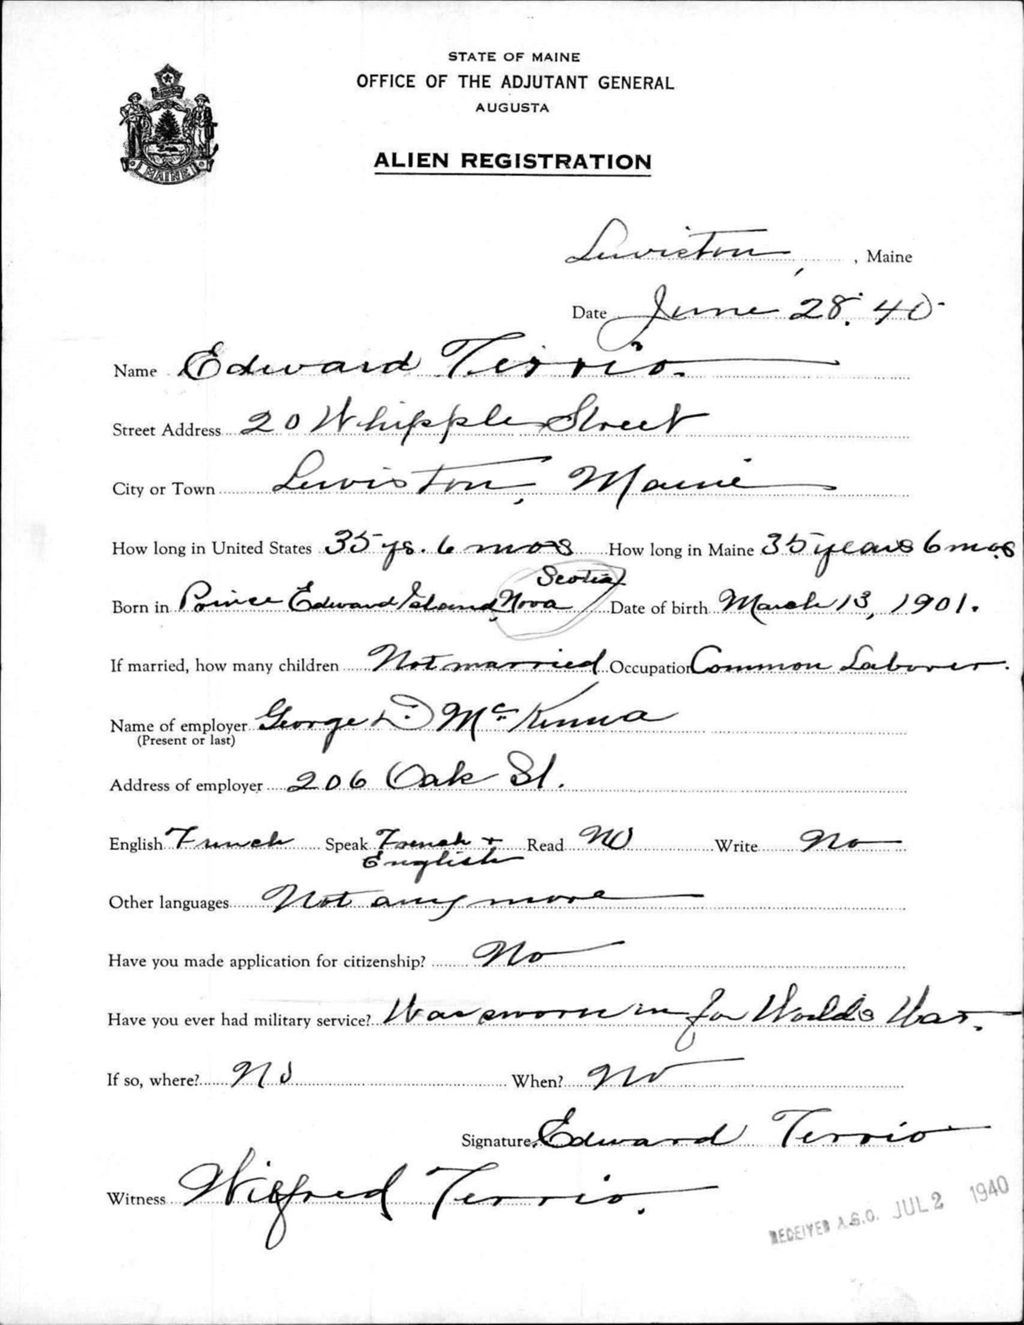 STATE OF MAINE
OFFICE OF THE ADJUTANT GENERAL
AUGUSTA
ALIEN REGISTRATION
MAINE
Lewiston, , Maine
Date June 28. 40
Name Edward Terrio.
Street Address 20 Whipple Street
City or Town Lewiston, Maine
How long in United States 35 ys. 6 mos How long in Maine 35 years 6 mos
Born in Prince Edward Island, Nova Scotia Date of birth March 13, 1901.
If married, how many children Not married Occupation Common Laborer.
Name of employer George D. McKenna
(Present or last)
Address of employer 206 Oak St.
English French Speak French + English Read No Write No
Other languages Not any more
Have you made application for citizenship? No
Have you ever had military service? Was sworn in for Worlds War.
If so, where? No When? No
Signature Edward Terrio
Witness Wilfred Terrio.
RECEIVED A.G.O. JUL 2 1940